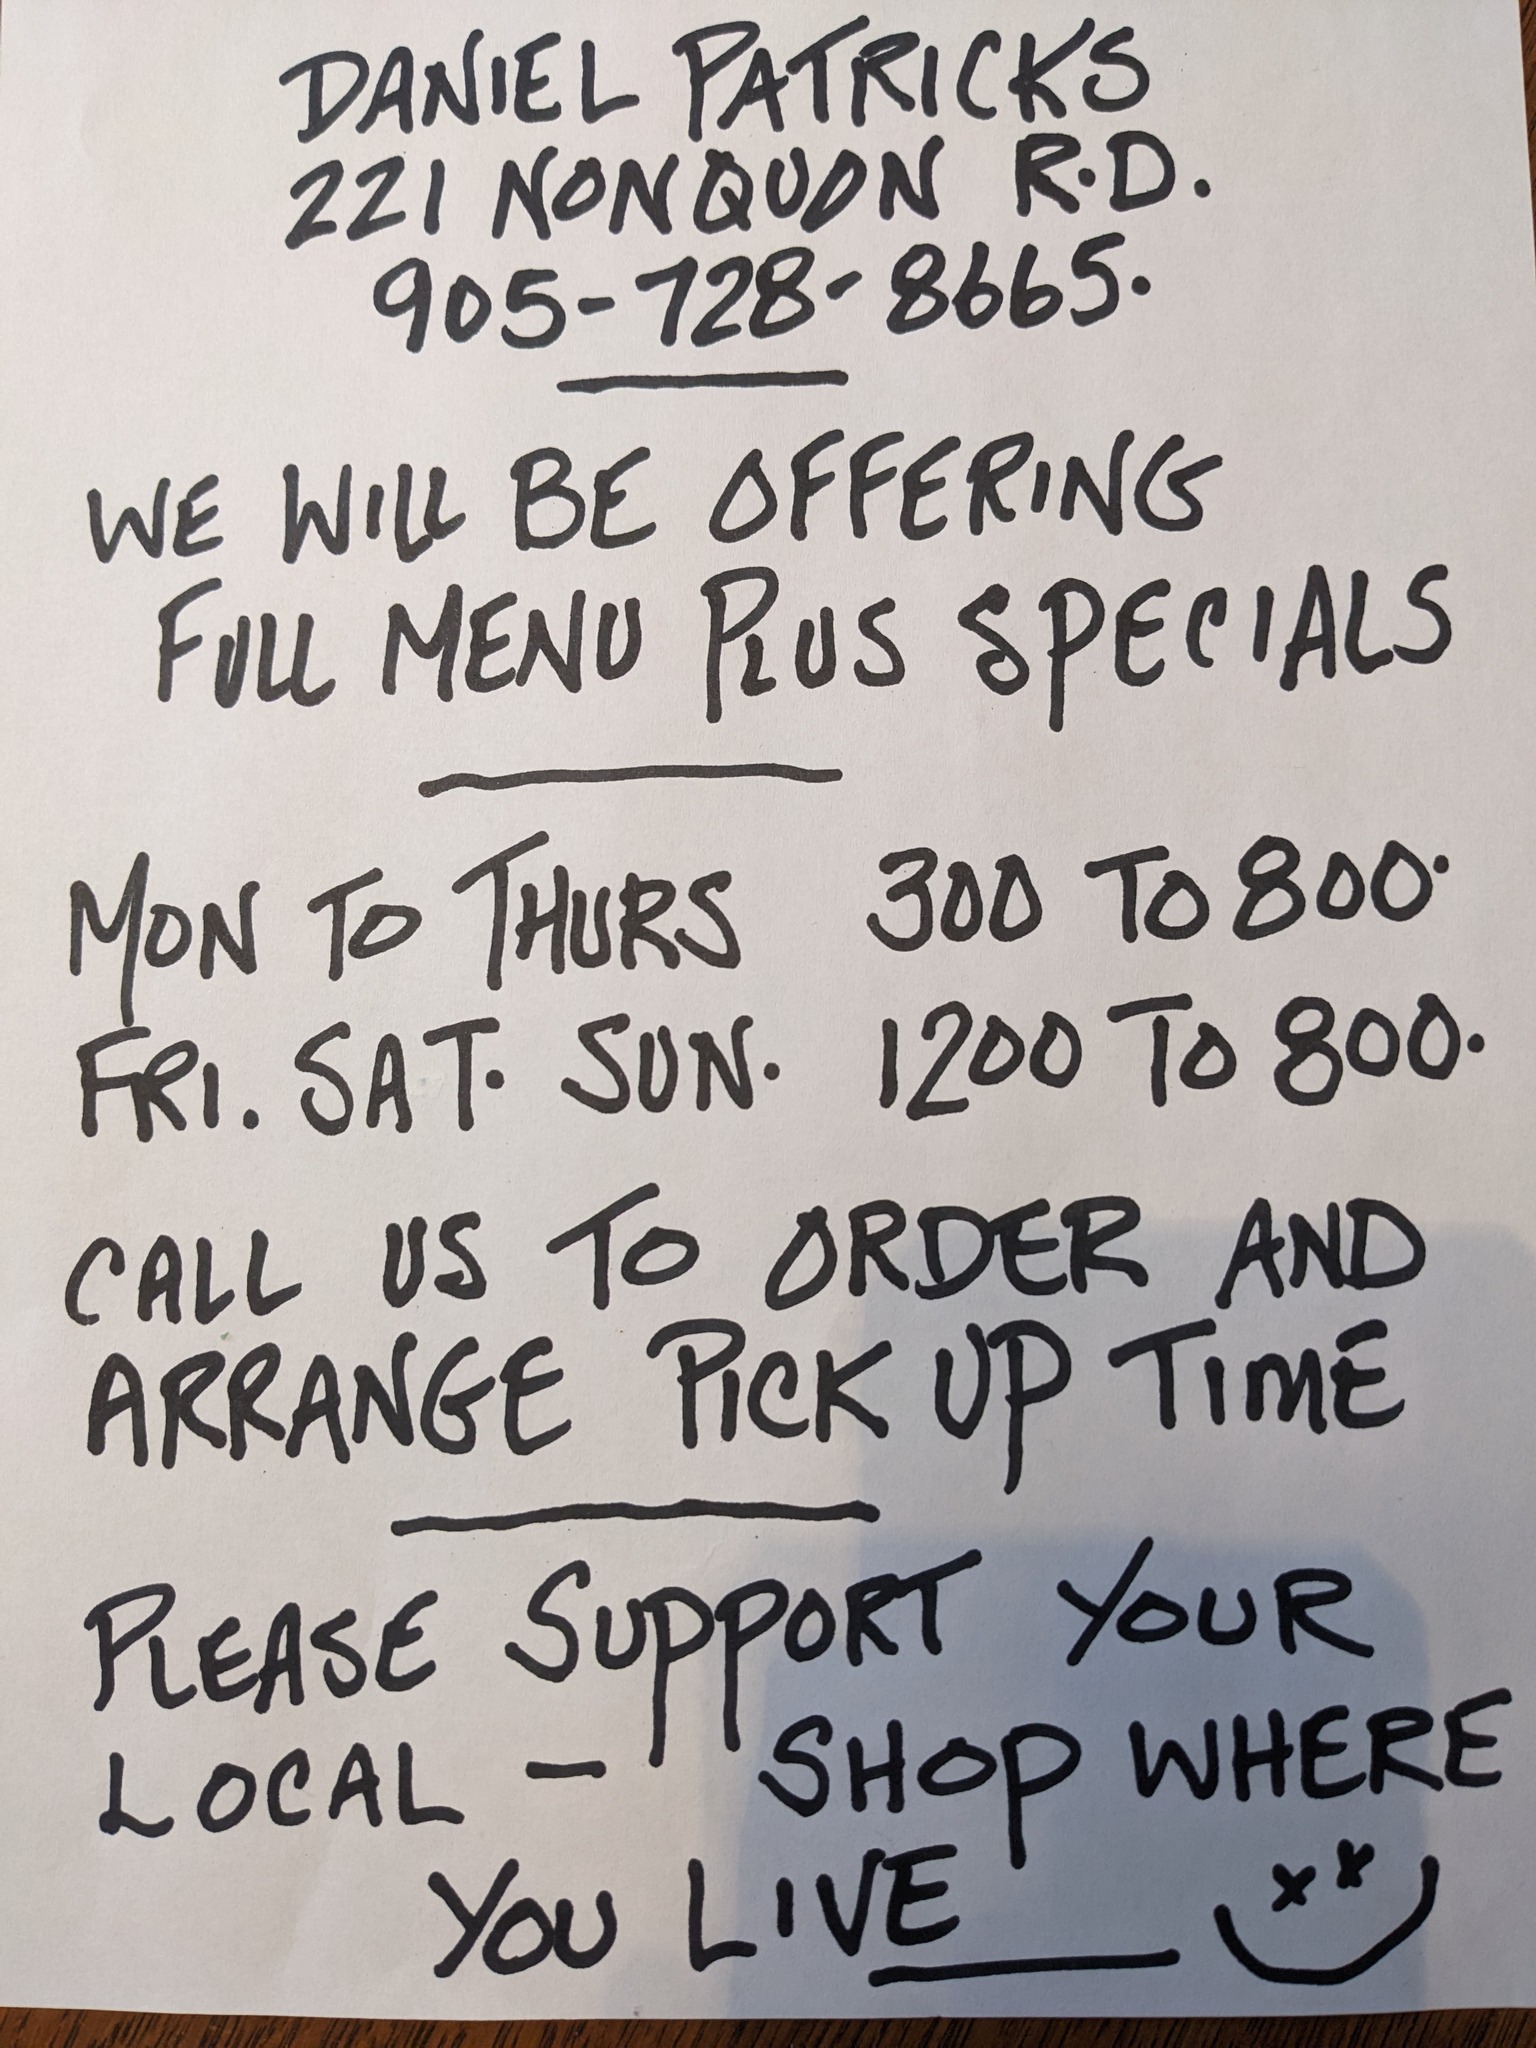 DANIEL PATRICKS
221 NONQUON R.D.
905-728-8665.
WE WILL BE OFFERING
FULL MENU PLUS SPECIALS
MON TO THURS 300 TO 800.
FRI. SAT. SUN. 1200 TO 800.
CALL US TO ORDER AND
ARRANGE PICK UP TIME
PLEASE SUPPORT YOUR
LOCAL - SHOP WHERE
YOU LIVE